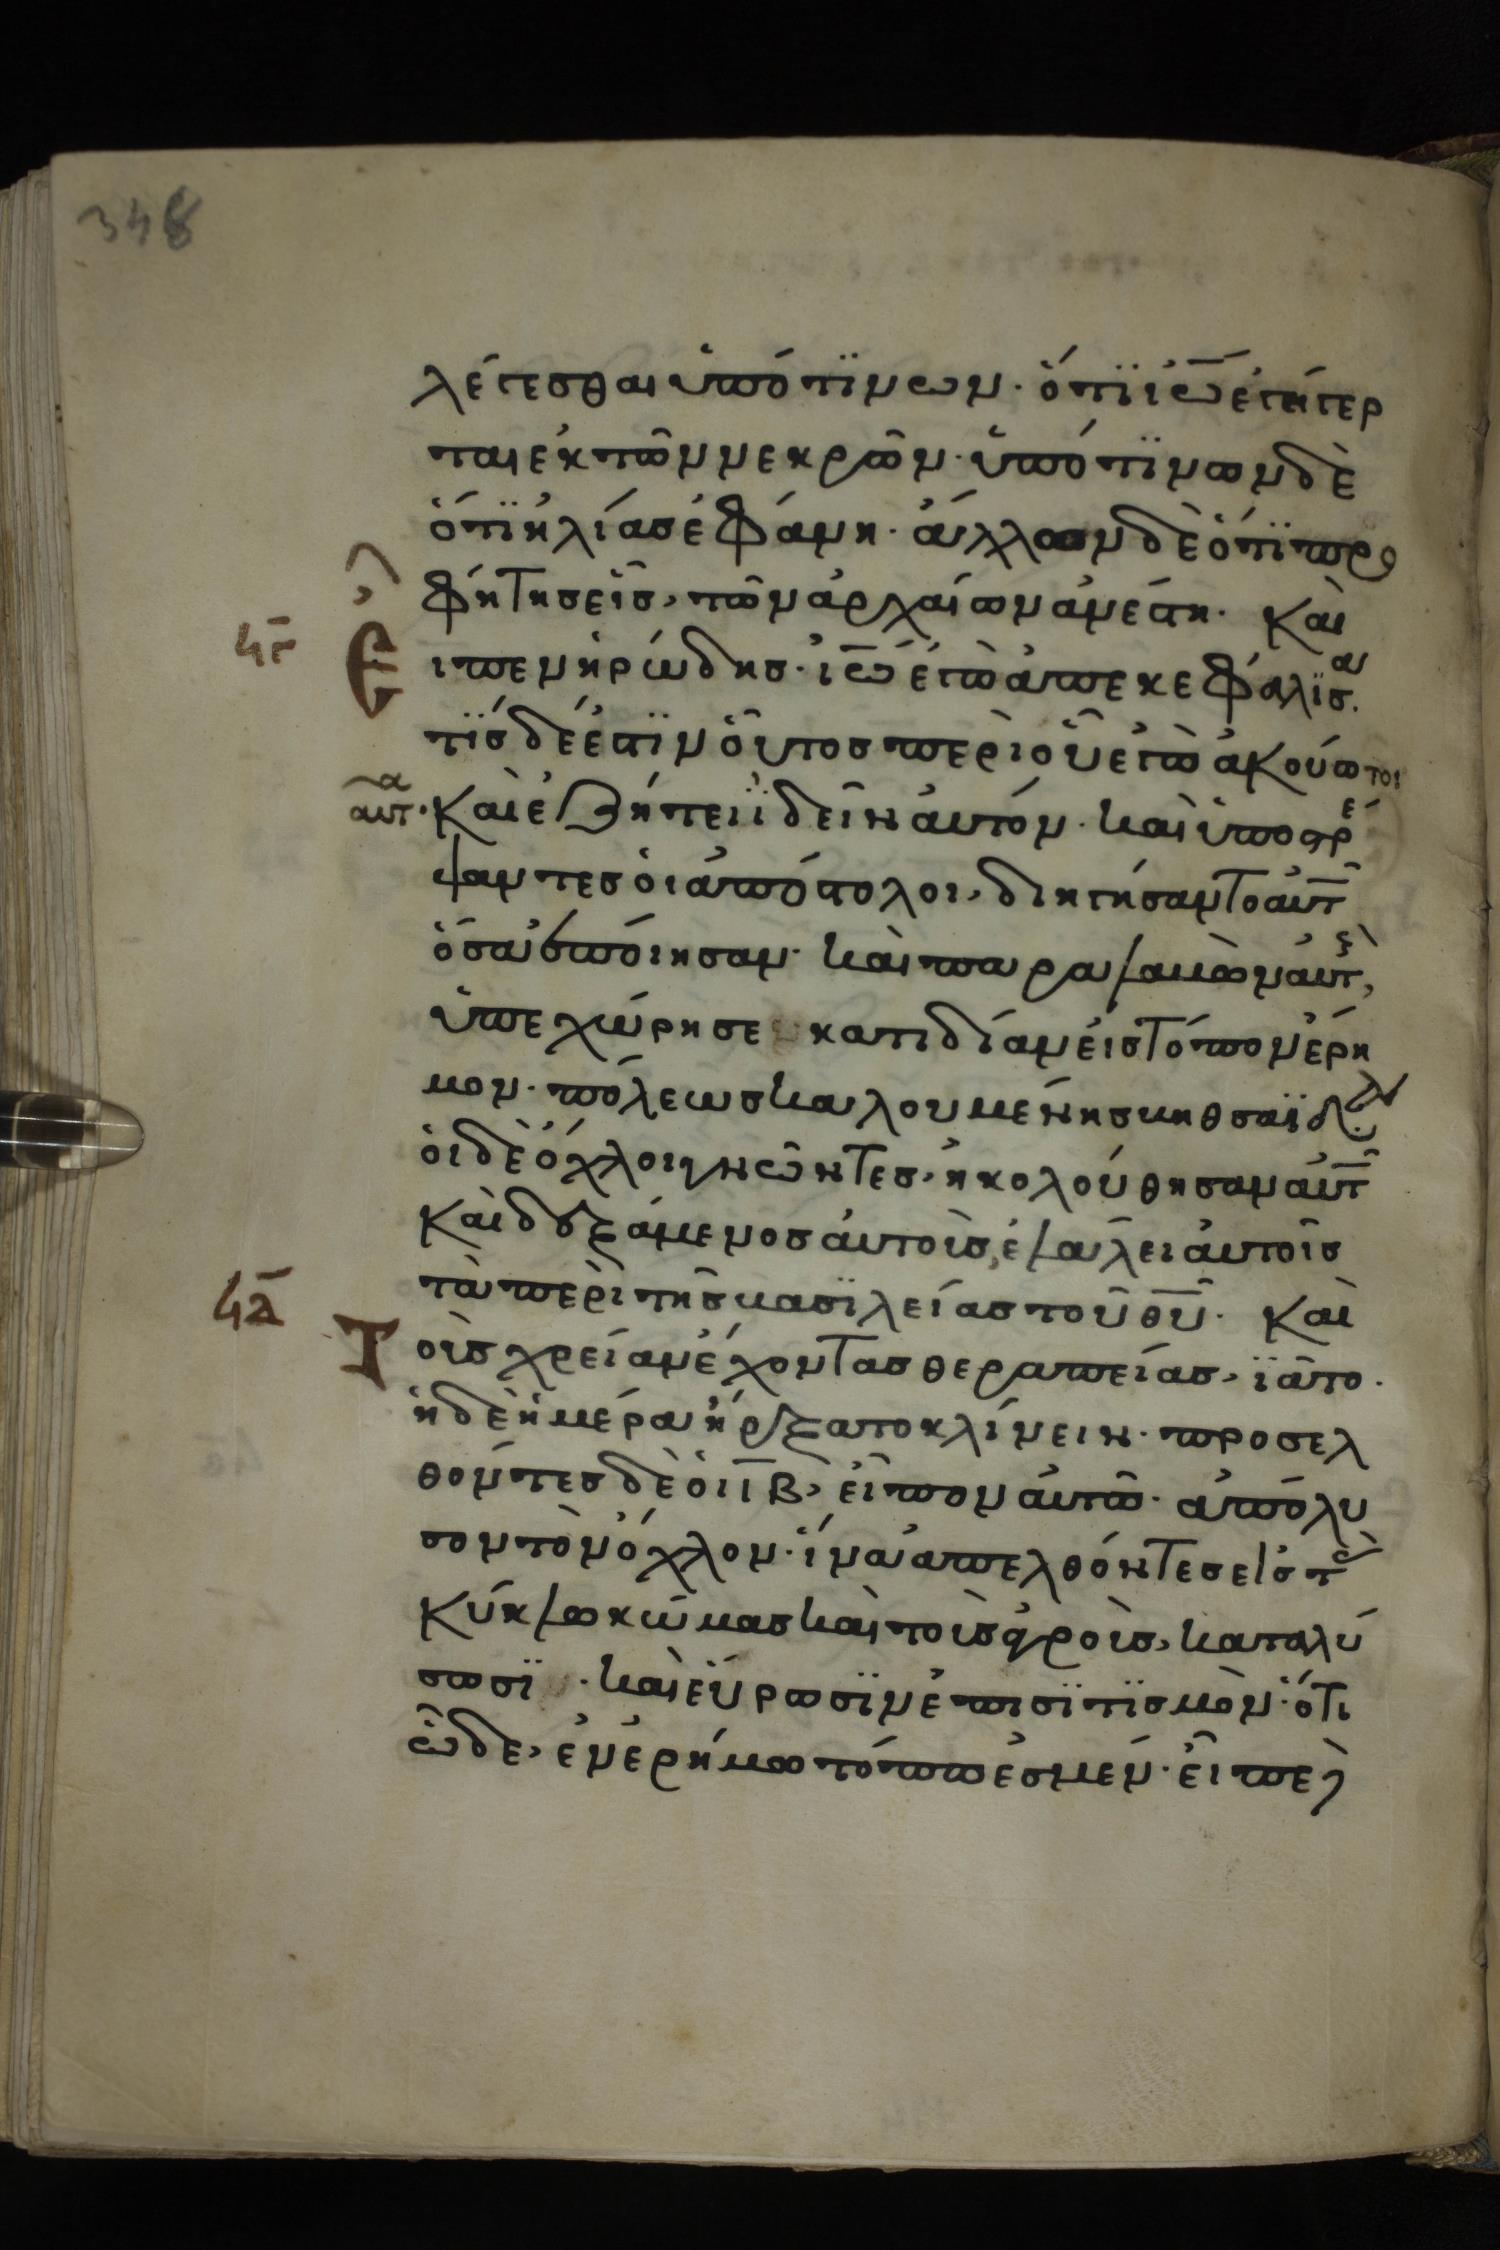 348
λέγεσθαι ὑπό τϊνων· ὅτϊ ϊω̅ ἐγήγερ
ται ἐκ τῶν νεκρῶν· ὑπό τϊνων δὲ
ὅτϊ ἠλίας ἐφάνη· ἄλλων δὲ ὅτϊ προ
φήτης εἷς, τῶν ἀρχαίων ἀνέστη· Καὶ
Ϟγ Ειπεν ἡρώδης· ϊω̅ ἐγὼ ἀπεκεφάλϊσα·
τϊς δέ ἐστϊν οὗτος περὶ οὗ ἐγὼ ἀκούω τοι
αυτα· Καὶ ἐζήτει ϊδεῖν αὐτόν· καὶ ὑποστρέ
ψαντες οἱ ἀπόστολοι, διηγήσαντο αὐτ
ὅσα ἐποίησαν· καὶ παραλαβὼν αὐτ,
ὑπεχώρησε κατιδίαν εἰς τόπον ἔρη
μον· πόλεως καλουμένης βηθσαϊδά·
οἱ δὲ ὄχλοι γνῶντες, ἠκολούθησαν αὐτ
Καὶ δεξάμενος αὐτοὺς, ἐλάλει αὐτοῖς
τὰ περὶ τῆς βασϊλείας τοῦ θυ̅· Καὶ
Ϟδ Τοὺς χρείαν ἔχοντας θεραπείας, ϊᾶτο·
ἡ δὲ ἡμέρα ἤρξατο κλίνειν· προσελ
θόντες δὲ οἱ ιβ̅, εἶπον αὐτῶ· ἀπόλυ
σον τὸν ὄχλον· ἵνα ἀπελθόντες εἰς τὰς
Κύκλω κώμας καὶ τοὺς ἀγροὺς, καταλύ
σωσϊ · καὶ εὕρωσϊν ἐπισϊτϊσμὸν· ὅτι
ὧδε, ἐν ἐρήμω τόπω ἐσμέν· εἶπε δὲ